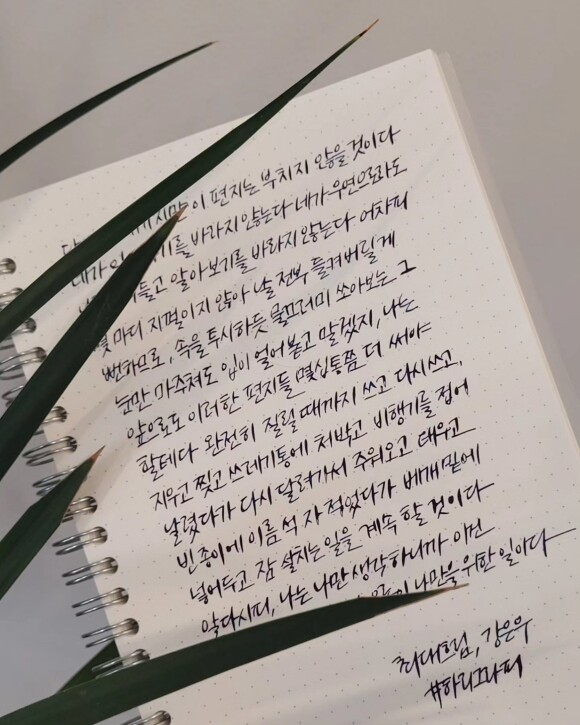 이 편지는 부치지 않을 것이다
를 바라지 않는다 네가 우연으로라도
듣고 알아보기를 바라지 않는다 어차피
마디 지껄이지 않아 날 전부 들켜버릴게
뻔하므로, 속을 투시하듯 물끄러미 쏘아보는 그
눈만 마주쳐도 입이 얼어붙고 말겠지, 나는
앞으로도 이러한 편지를 몇십통쯤 더 써야
할테다 완전히 질릴 때까지 쓰고 다시쓰고,
지우고 찢고 쓰레기통에 처박고 비행기를 접어
날렸다가 다시 달려가서 주워오고 태우고
빈 종이에 이름 석 자 적었다가 베개 밑에
넣어두고 잠 설치는 일을 계속 할 것이다
알다시피, 나는 나만 생각하니까 이건
나만을 위한 일이다
최대흐림, 강은우
#하리그라피